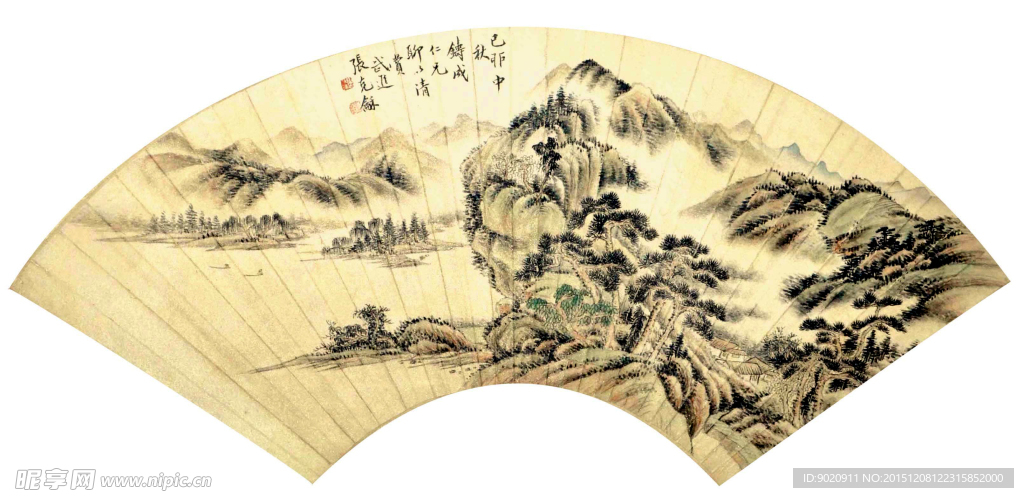 己卯中
秋
鑄成
仁兄
聊以清
賞
武進
張克龢
昵享网 www.nipic.cn
ID:9020911 NO:20151208122315852000